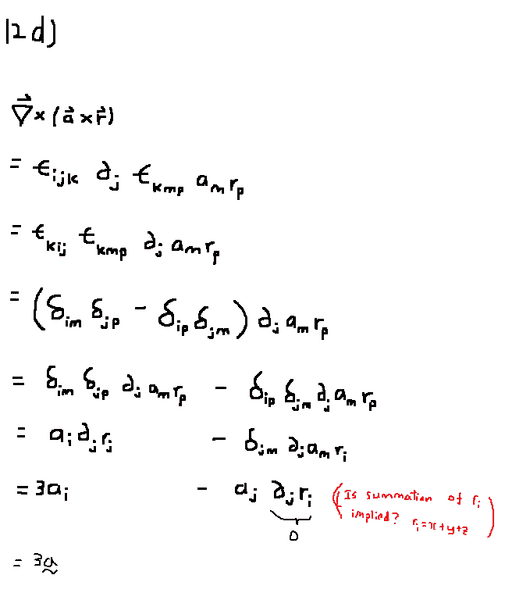 12 d)
∇⃗ × (a⃗ × r⃗)
= ϵ_ijk ∂_j ϵ_kmp a_m r_p
= ϵ_kij ϵ_kmp ∂_j a_m r_p
= (δ_im δ_jp - δ_ip δ_jm) ∂_j a_m r_p
= δ_im δ_jp ∂_j a_m r_p - δ_ip δ_jm ∂_j a_m r_p
= a_i ∂_j r_j - δ_jm ∂_j a_m r_i
= 3a_i - a_j ∂_j r_i (Is summation of r_i
0 implied? r_i = x+y+z)
= 3a